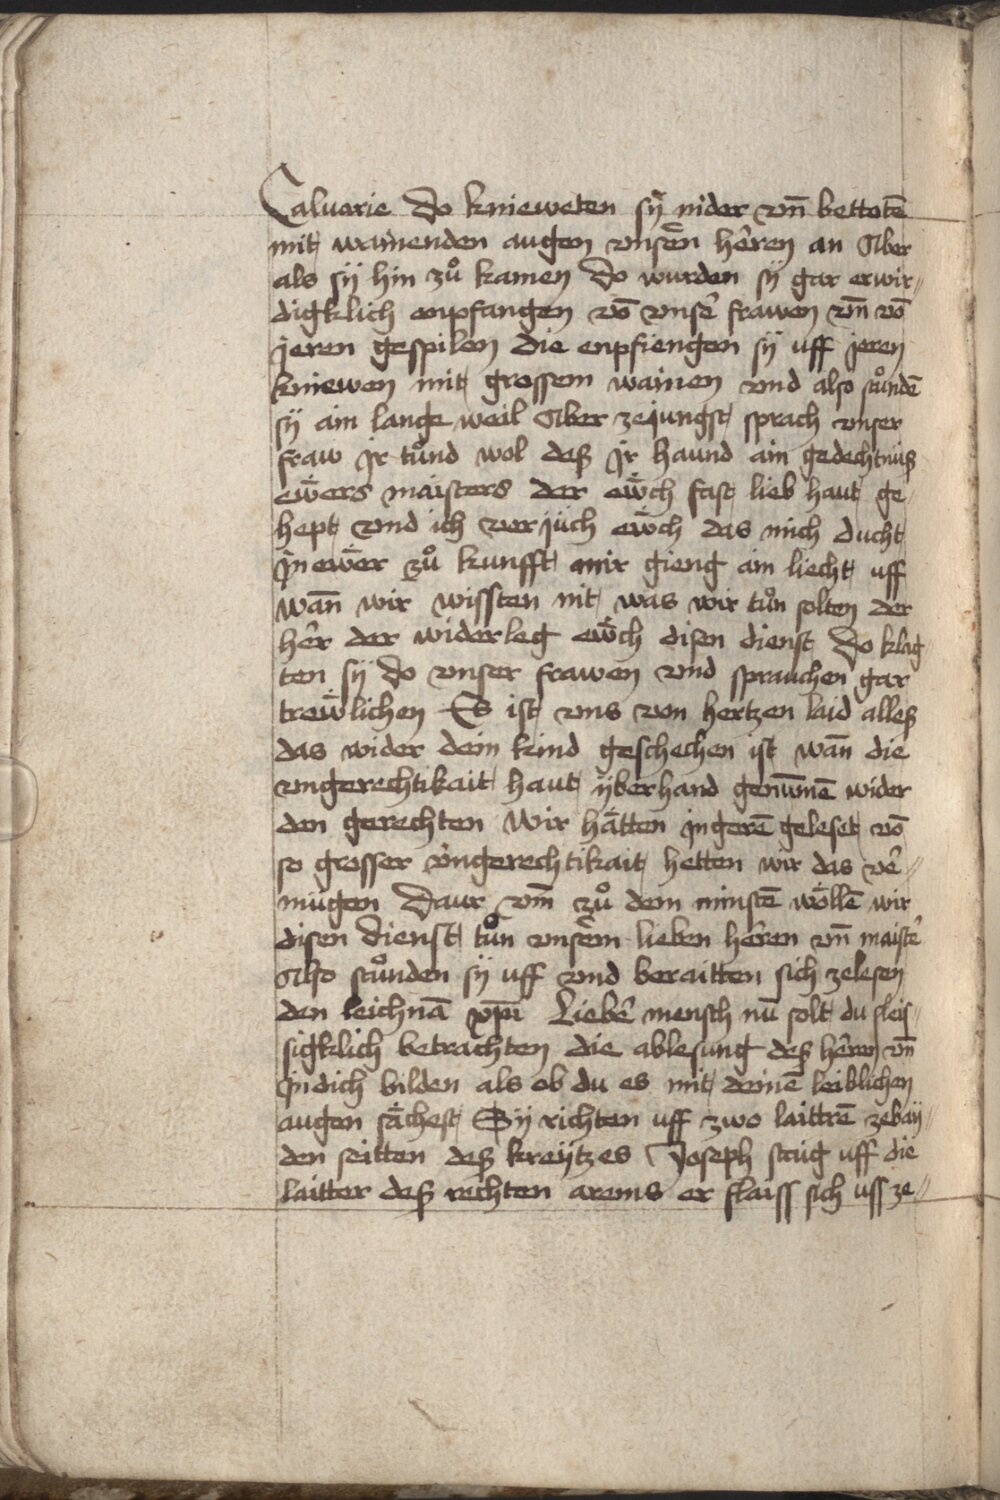 Caluarie Do knieweten sÿ nider vn̄ bettotē
mit wainenden augen vnsern̄ hêren an Aber
als sÿ hin zů kamen Do wurden sÿ gar erwir„
digklich enpfangen vō vnsê frawen vn̄ vō
jeren gespilen die enpfiengen sÿ uff jeren
kniewen mit grossem wainen vnd also stůndē
sÿ ain lange weil Aber zejungst sprach vnser
fraw Ir tůnd wol deß Ir haund ain gedechtnuß
ewërs maisters der ewch fast lieb haut ge„
hept vnd ich verjüch ewch das mich ducht
In ewer zů kunfft mir gieng ain liecht uff
wān wir wissten nit was wir tůn solten der
hêr der widerleg ewch disen dienst Do klag
ten sÿ do vnser frawen vnd sprauchen gar
trewlichen Es ist vns von hertzen laid alles
das wider dein kind geschechen ist wān die
vngerechtikait haut ÿberhand genūmē wider
den gerechten Wir hätten jn gerē geleset vō
so grosser vngerechtikait hetten wir das vê„
mügen Daur vm̄ zů dem minstē wöllē wir
disen dienst tůn vnserm lieben hêren vn̄ maistê
Also stůnden sÿ uff vnd beraitten sich zelesen
den leichnā xp̄i Liebê mensch nū solt du fleis„
sigklich betrachten die ablesung deß hêren vn̄
In dich bilden als ob du es mit deinē leiblichen
augen sächest Sÿ richten uff zwo laittrē zebaÿ„
den seitten deß kreÿtzes Joseph staig uff die
laitter deß rechten arems er flaiss sich uss ze„